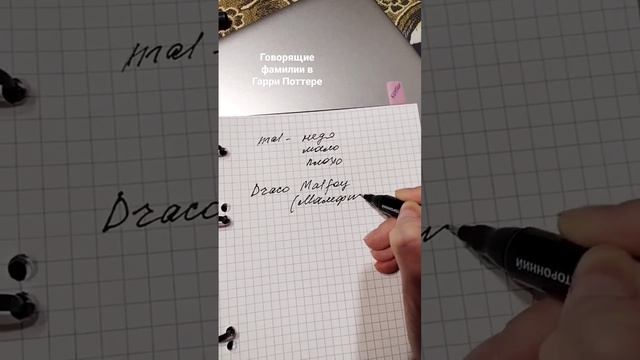 Говорящие
фамилии в
Гарри Поттере
mal - недо
мало
плохо
Draco Malfoy
(Малфи
mal -
Draco
СТОРОННИЙ